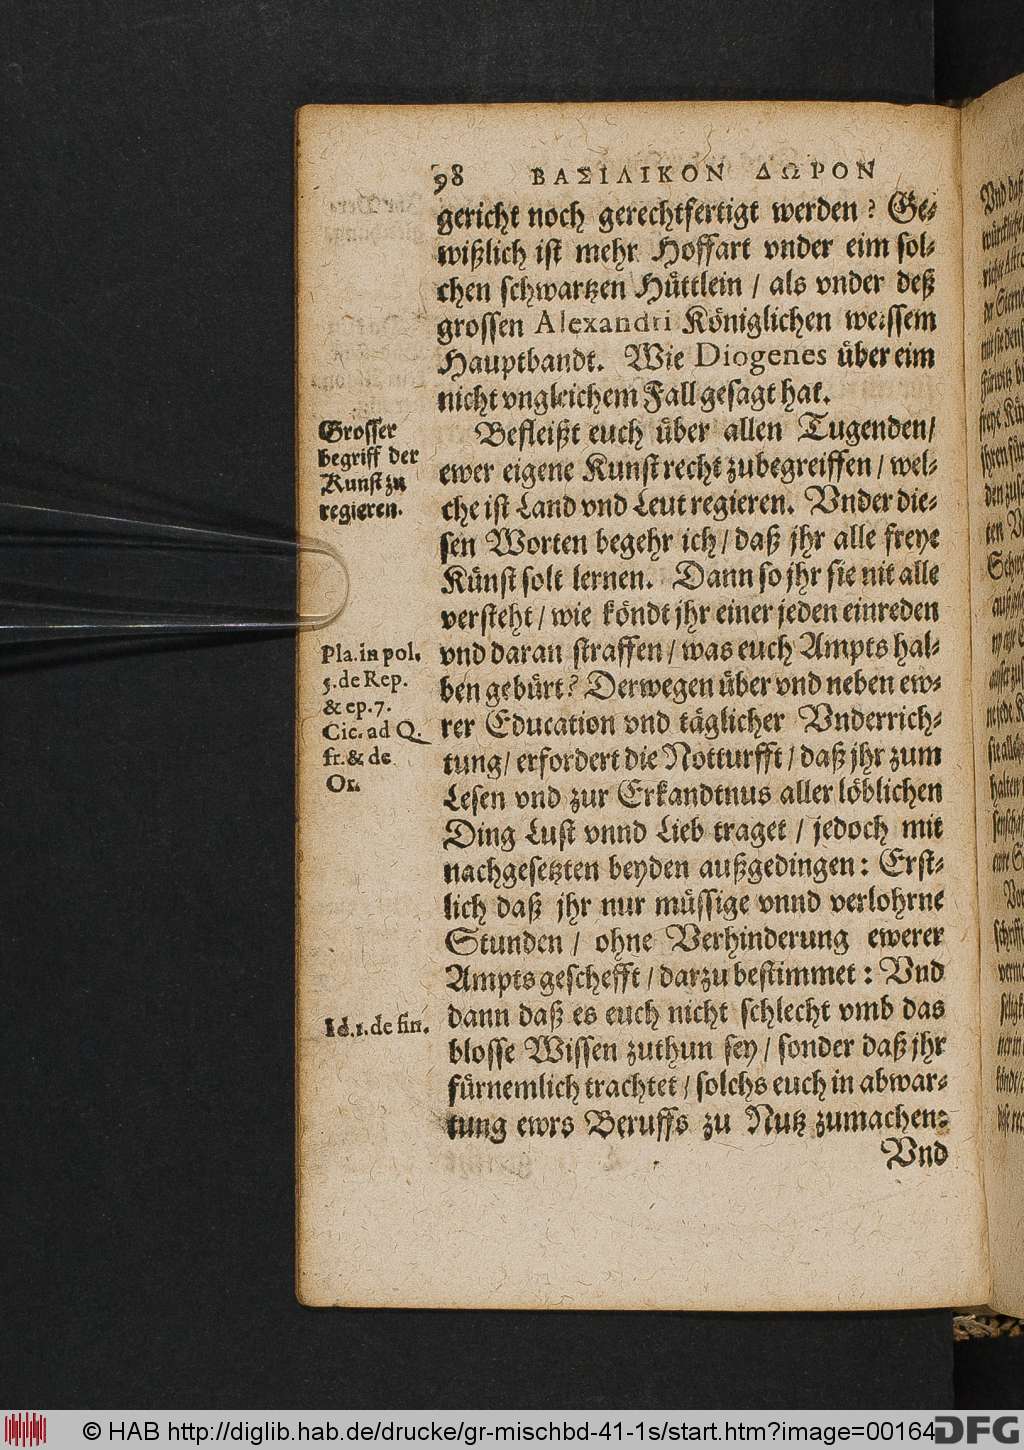 98 ΒΑΣΙΛΙΚΟΝ ΔΩΡΟΝ
gericht noch gerechtfertigt werden? Ge-
wißlich ist mehr Hoffart vnder eim sol-
chen schwartzen Hüttlein / als vnder deß
grossen Alexandri Königlichen weissem
Hauptbandt. Wie Diogenes über eim
nicht vngleichem Fall gesagt hat.
Grosser
begriff der
Kunst zu
regieren.
Befleißt euch über allen Tugenden/
ewer eigene Kunst recht zubegreiffen / wel-
che ist Land vnd Leut regieren. Vnder die-
sen Worten begehr ich / daß jhr alle freye
Künst solt lernen. Dann so jhr sie nit alle
versteht / wie köndt jhr einer jeden einreden
Pla. in pol.
5. de Rep.
& ep. 7.
Cic. ad Q.
fr. & de
Or.
vnd daran straffen / was euch Ampts hal-
ben gebürt? Derwegen über vnd neben ew-
rer Education vnd täglicher Vnderrich-
tung / erfordert die Notturfft / daß jhr zum
Lesen vnd zur Erkandtnus aller löblichen
Ding Lust vnnd Lieb traget / jedoch mit
nachgesetzten beyden außgedingen: Erst-
lich daß jhr nur müssige vnnd verlohrne
Stunden / ohne Verhinderung ewerer
Ampts geschefft / darzu bestimmet: Vnd
Id. 1. de fin.
dann daß es euch nicht schlecht vmb das
blosse Wissen zuthun sey / sonder daß jhr
fürnemlich trachtet / solchs euch in abwar-
tung ewrs Beruffs zu Nutz zumachen:
Vnd
© HAB http://diglib.hab.de/drucke/gr-mischbd-41-1s/start.htm?image=00164
DFG